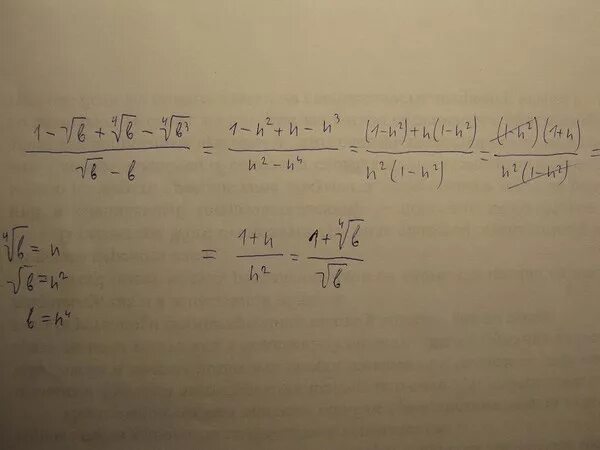 (1-√в+⁴√в-⁴√в³)/(√в-в) = (1-n²+n-n³)/(n²-n⁴) = ((1-n²)+n(1-n²))/(n²(1-n²)) = ((1-n²)(1+n))/(n²(1-n²)) =
⁴√в=n
√в=n²
в=n⁴
= (1+n)/n² = (1+⁴√в)/√в